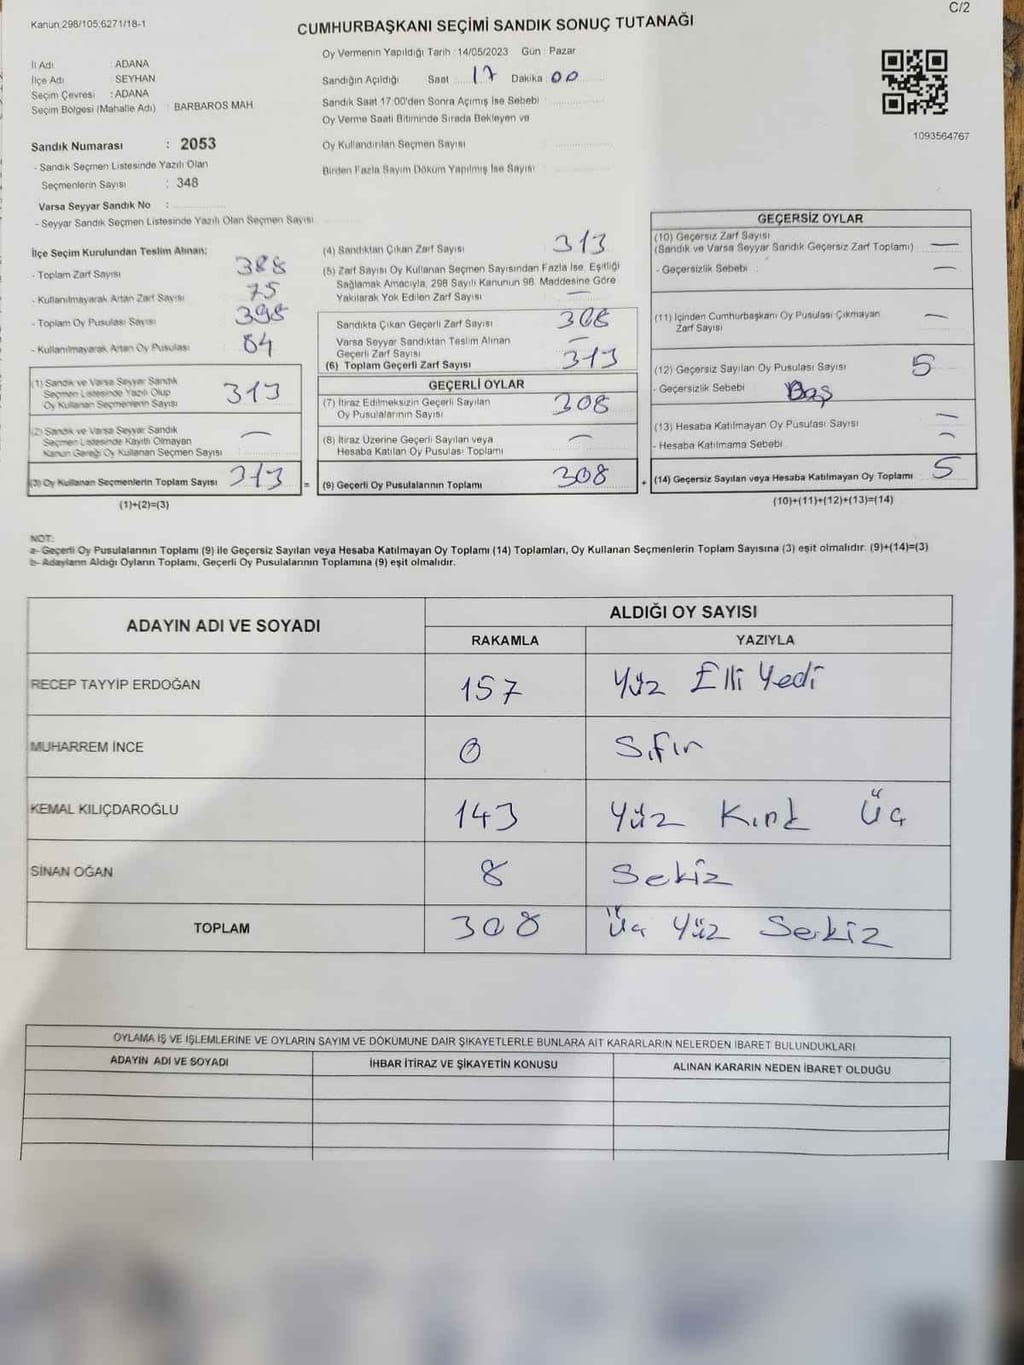 Kanun 298/105,6271/18-1
C/2
CUMHURBAŞKANI SEÇİMİ SANDIK SONUÇ TUTANAĞI
Oy Vermenin Yapıldığı Tarih : 14/05/2023 Gün : Pazar
İl Adı : ADANA
İlçe Adı : SEYHAN
Seçim Çevresi : ADANA
Seçim Bölgesi (Mahalle Adı) : BARBAROS MAH.
Sandığın Açıldığı Saat 17 Dakika 00
Sandık Saat 17:00'den Sonra Açımış İse Sebebi :
Oy Verme Saati Bitiminde Sırada Bekleyen ve
Oy Kullandırılan Seçmen Sayısı
Birden Fazla Sayım Döküm Yapılmış İse Sayısı
1093564767
Sandık Numarası : 2053
- Sandık Seçmen Listesinde Yazılı Olan
Seçmenlerin Sayısı : 348
Varsa Seyyar Sandık No :
- Seyyar Sandık Seçmen Listesinde Yazılı Olan Seçmen Sayısı
İlçe Seçim Kurulundan Teslim Alınan;
- Toplam Zarf Sayısı 388
- Kullanılmayarak Artan Zarf Sayısı 75
- Toplam Oy Pusulası Sayısı 398
- Kullanılmayarak Artan Oy Pusulası 84
(1) Sandık ve Varsa Seyyar Sandık
Seçmen Listesinde Yazılı Olup
Oy Kullanan Seçmenlerin Sayısı 313
(2) Sandık ve Varsa Seyyar Sandık
Seçmen Listesinde Kayıtlı Olmayan
Kanun Gereği Oy Kullanan Seçmen Sayısı —
(3) Oy Kullanan Seçmenlerin Toplam Sayısı 313
(1)+(2)=(3)
(4) Sandıktan Çıkan Zarf Sayısı 313
(5) Zarf Sayısı Oy Kullanan Seçmen Sayısından Fazla İse, Eşitliği
Sağlamak Amacıyla, 298 Sayılı Kanunun 98. Maddesine Göre
Yakılarak Yok Edilen Zarf Sayısı —
Sandıkta Çıkan Geçerli Zarf Sayısı 308
Varsa Seyyar Sandıktan Teslim Alınan
Geçerli Zarf Sayısı —
(6) Toplam Geçerli Zarf Sayısı 313
GEÇERLİ OYLAR
(7) İtiraz Edilmeksizin Geçerli Sayılan
Oy Pusulalarının Sayısı 308
(8) İtiraz Üzerine Geçerli Sayılan veya
Hesaba Katılan Oy Pusulası Toplamı —
= (9) Geçerli Oy Pusulalarının Toplamı 308
GEÇERSİZ OYLAR
(10) Geçersiz Zarf Sayısı
(Sandık ve Varsa Seyyar Sandık Geçersiz Zarf Toplamı) —
- Geçersizlik Sebebi : —
(11) İçinden Cumhurbaşkanı Oy Pusulası Çıkmayan
Zarf Sayısı —
(12) Geçersiz Sayılan Oy Pusulası Sayısı 5
- Geçersizlik Sebebi Boş
(13) Hesaba Katılmayan Oy Pusulası Sayısı —
- Hesaba Katılmama Sebebi —
+ (14) Geçersiz Sayılan veya Hesaba Katılmayan Oy Toplamı 5
(10)+(11)+(12)+(13)=(14)
NOT:
a- Geçerli Oy Pusulalarının Toplamı (9) ile Geçersiz Sayılan veya Hesaba Katılmayan Oy Toplamı (14) Toplamları, Oy Kullanan Seçmenlerin Toplam Sayısına (3) eşit olmalıdır. (9)+(14)=(3)
b- Adayların Aldığı Oyların Toplamı, Geçerli Oy Pusulalarının Toplamına (9) eşit olmalıdır.
ADAYIN ADI VE SOYADI
ALDIĞI OY SAYISI
RAKAMLA YAZIYLA
RECEP TAYYİP ERDOĞAN 157 Yüz Elli Yedi
MUHARREM İNCE 0 Sıfır
KEMAL KILIÇDAROĞLU 143 Yüz Kırk Üç
SİNAN OĞAN 8 Sekiz
TOPLAM 308 Üç Yüz Sekiz
OYLAMA İŞ VE İŞLEMLERİNE VE OYLARIN SAYIM VE DÖKÜMÜNE DAİR ŞİKAYETLERLE BUNLARA AİT KARARLARIN NELERDEN İBARET BULUNDUKLARI
ADAYIN ADI VE SOYADI İHBAR İTİRAZ VE ŞİKAYETİN KONUSU ALINAN KARARIN NEDEN İBARET OLDUĞU